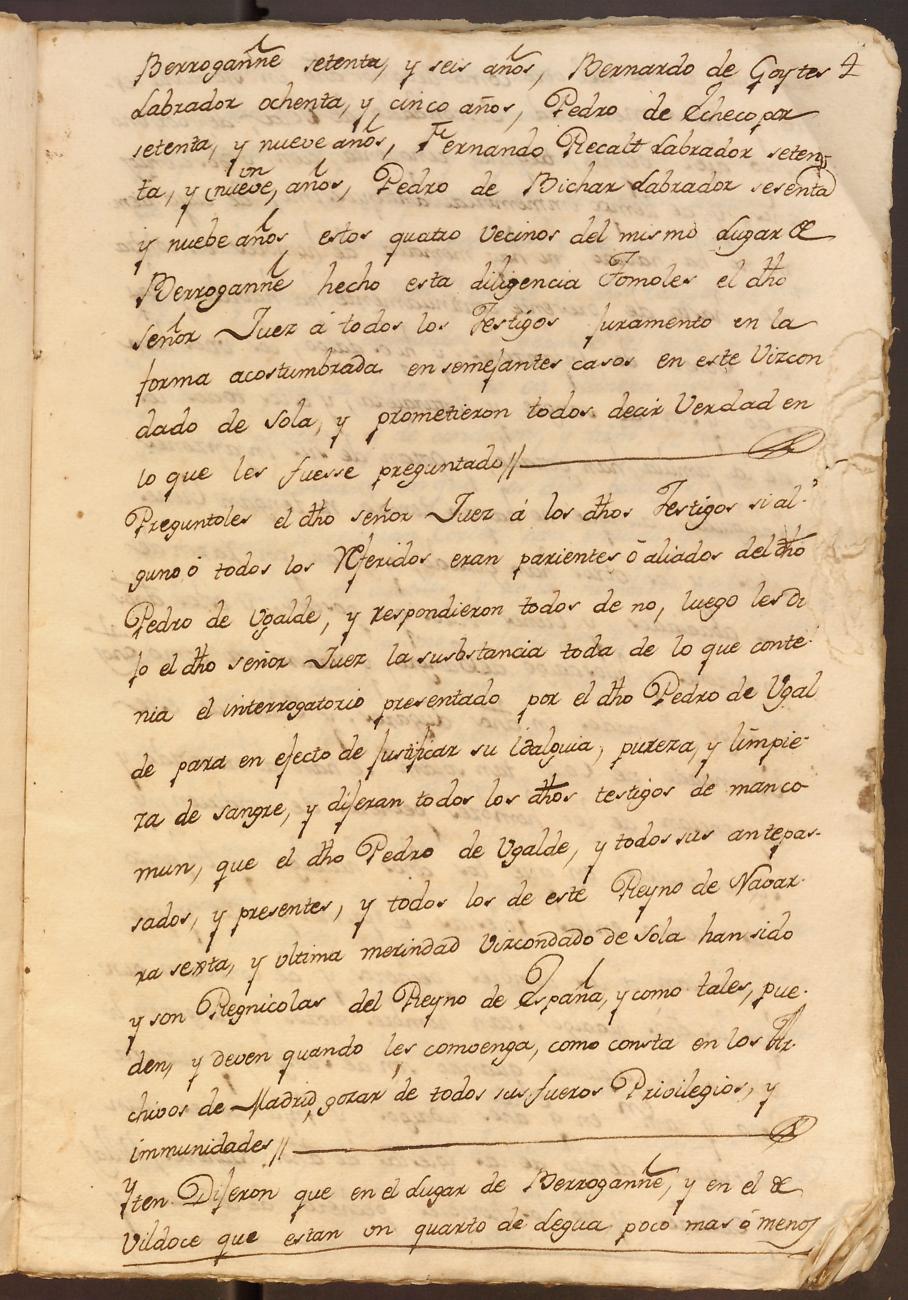 Berrogañne setenta, y seis años, Bernardo de Goytes 4
Labrador ochenta, y cinco años, Pedro de Echecopar
setenta, y nueve años, Fernando Recalt Labrador seten
un
ta, y (nueve, años, Pedro de Bichar Labrador sesenta
y nuebe años estos quatro vecinos del mismo Lugar de
Berrogañne hecho esta diligencia Tomoles el dho
señor Juez á todos los Testigos Juramento en la
forma acostumbrada en semejantes casos en este Vizcon
dado de Sola, y prometieron todos decir Verdad en
lo que les fuesse preguntado //
Preguntoles el dho señor Juez á los dhos Testigos si al-
guno ó todos los Referidos eran parientes ó aliados del dho
Pedro de Ugalde, y respondieron todos de no, luego les di
jo el dho señor Juez la susbstancia toda de lo que conte-
nia el interrogatorio presentado por el dho Pedro de Ugal
de para en efecto de justificar su idalguia, pureza, y limpie-
za de sangre, y dijeran todos los dhos testigos de manco-
mun, que el dho Pedro de Ugalde, y todos sus antepas-
sados, y presentes, y todos los de este Reyno de Navar-
ra sexta, y ultima merindad vizcondado de Sola han sido
y son Regnicolas del Reyno de España, y como tales, pue-
den, y deven quando les comvenga, como consta en los Ar-
chivos de Madrid, gozar de todos sus fueros Privilegios, y
immunidades //
yten Dijeron que en el Lugar de Berrogañne, y en el de
Vildoce que estan un quarto de Legua poco mas ó menos